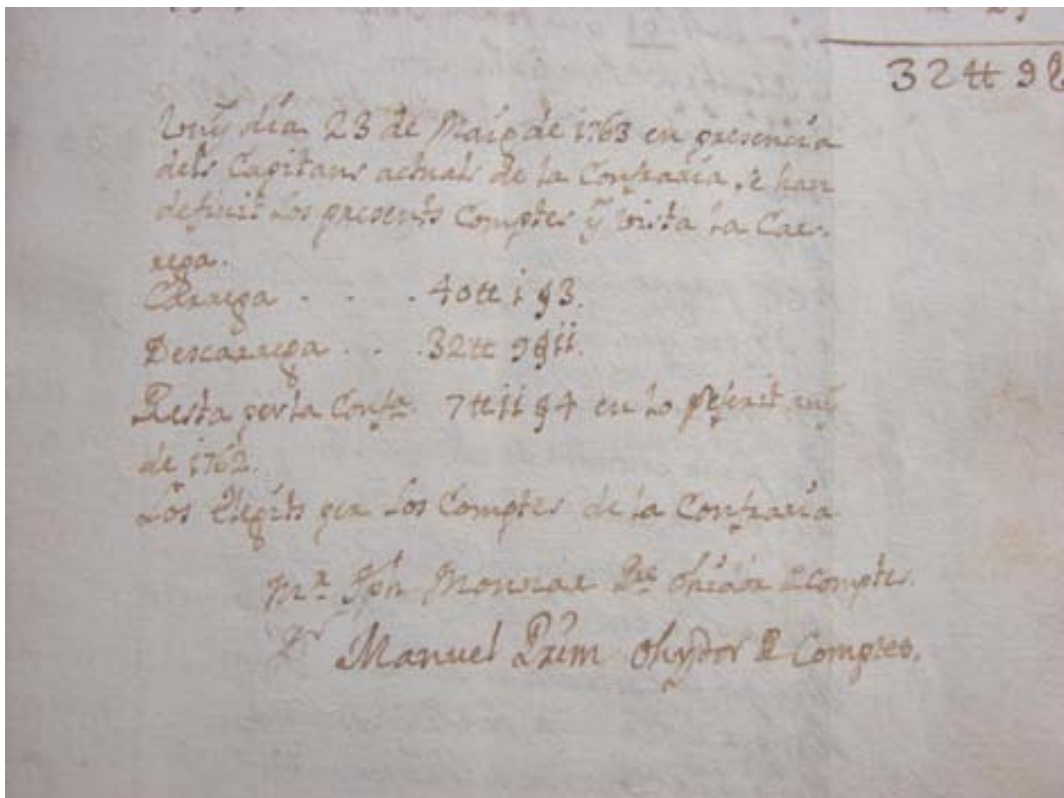 32 tt 9 ß
Vuy dia 23 de Maig de 1763 en presencia
dels Capitans actuals de la Confraria, se han
definit los presents Comptes y vista la Car-
rega.
Carrega . . . 40 tt i ß 3.
Descarrega . . . 32 tt 9 ß ii.
Resta per la Confra. 7 tt ii ß 4 en lo
de 1762.
Los Elegits per los Comptes de la Confraria
Jph Monrrae Pre Ohidor de Comptes.
Manuel Prim Ohydor de Comptes.